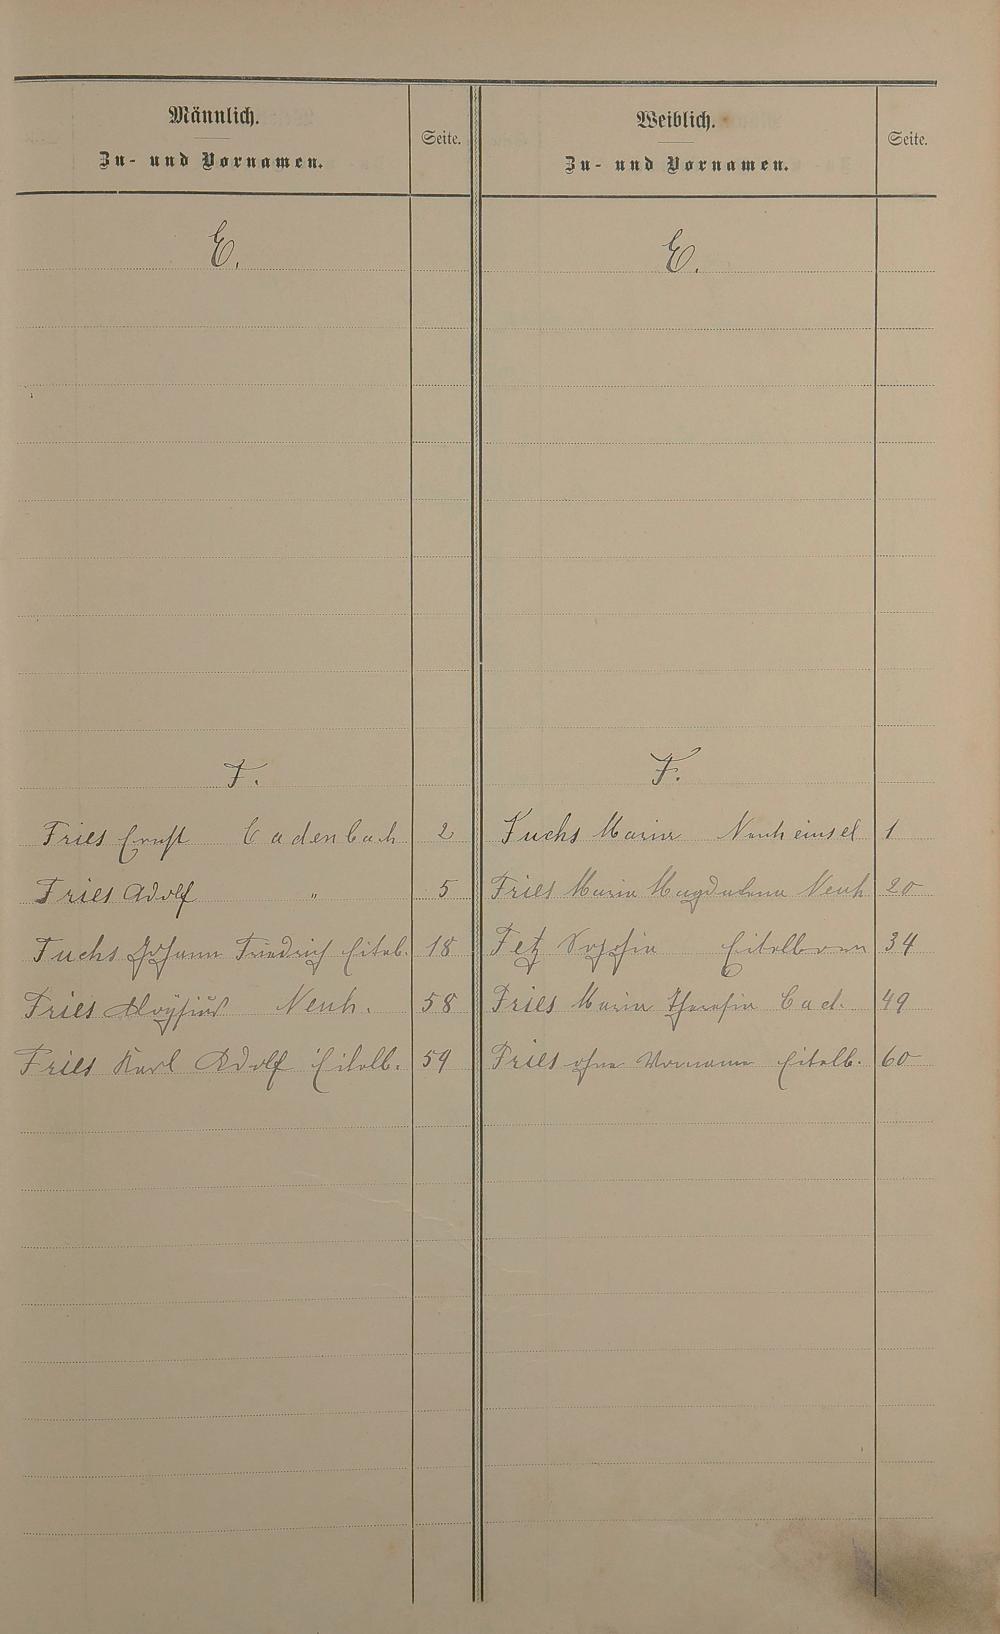 Männlich.
Zu- und Vornamen.
Seite.
E.
F.
Fries Ernst Cadenbach 2
Fries Adolf " 5
Fuchs Johann Friedrich Eitelb. 18
Fries Aloÿsius Neuh. 58
Fries Karl Adolf Eitelb. 59
Weiblich.
Zu- und Vornamen.
Seite.
E.
F.
Fuchs Maria Neuheinsel 1
Fries Maria Magdalena Neuh 20
Fetz Sophia Eitelborn 34
Fries Maria Theresia Cad. 49
Fries ohne Vorname Eitelb. 60